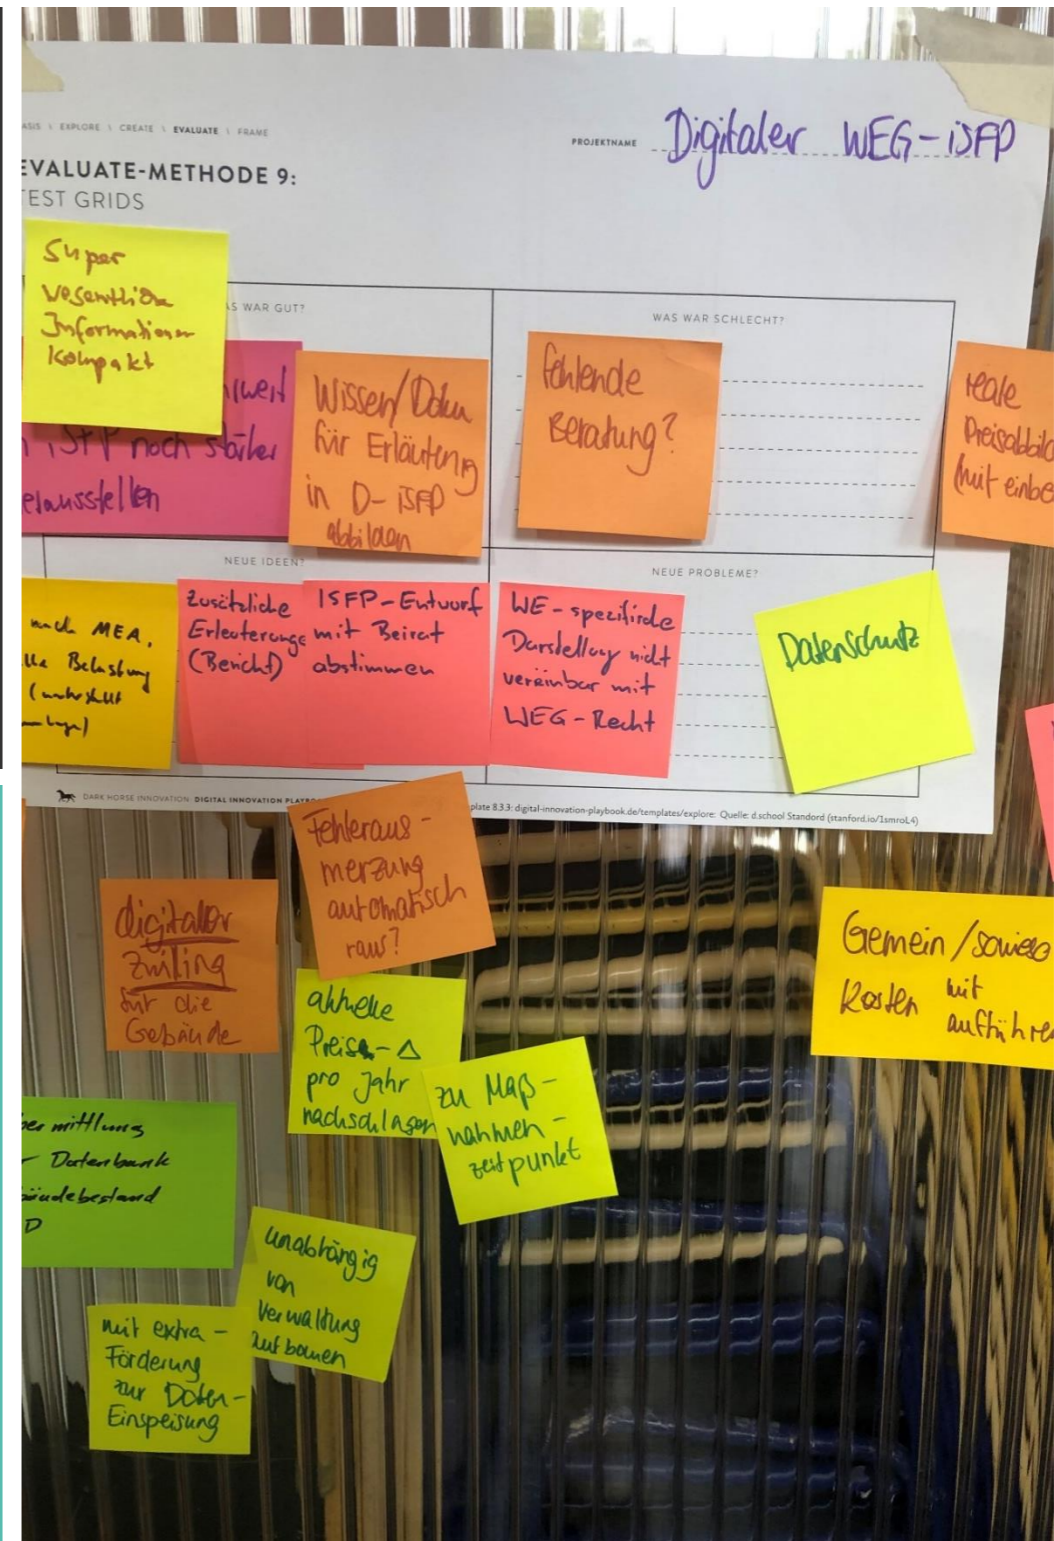 ASIS \ EXPLORE \ CREATE \ EVALUATE \ FRAME
PROJEKTNAME Digitaler WEG-iSFP
EVALUATE-METHODE 9:
TEST GRIDS
Super
wesentliche
Informationen
kompakt
AS WAR GUT?
iSFP noch stärker
ausstellen
Wissen/Doku
für Erläuterung
in D-iSFP
abbilden
WAS WAR SCHLECHT?
fehlende
Beratung?
reale
Preisabbild
(mit einbe
NEUE IDEEN?
nach MEA,
Belastung
Zusätzliche
Erleuterunge
(Bericht)
ISFP-Entwurf
mit Beirat
abstimmen
NEUE PROBLEME?
WE-spezifische
Darstellung nicht
vereinbar mit
WEG-Recht
Datenschutz
DARK HORSE INNOVATION DIGITAL INNOVATION PLAYB
plate 8.3.3: digital-innovation-playbook.de/templates/explore: Quelle: d.school Standord (stanford.io/1smroL4)
Fehleraus-
merzung
automatisch
raus?
digitaler
Zwiling
für die
Gebäude
aktuelle
Preise-Δ
pro Jahr
nachschlagen
zu Maß-
nahmen-
zeitpunkt
Gemein/sowieso
Kosten mit
aufführe
ermittlung
Datenbank
bäudebestand
D
unabhängig
von
Verwaltung
aufbauen
mit extra-
Förderung
zur Daten-
Einspeisung